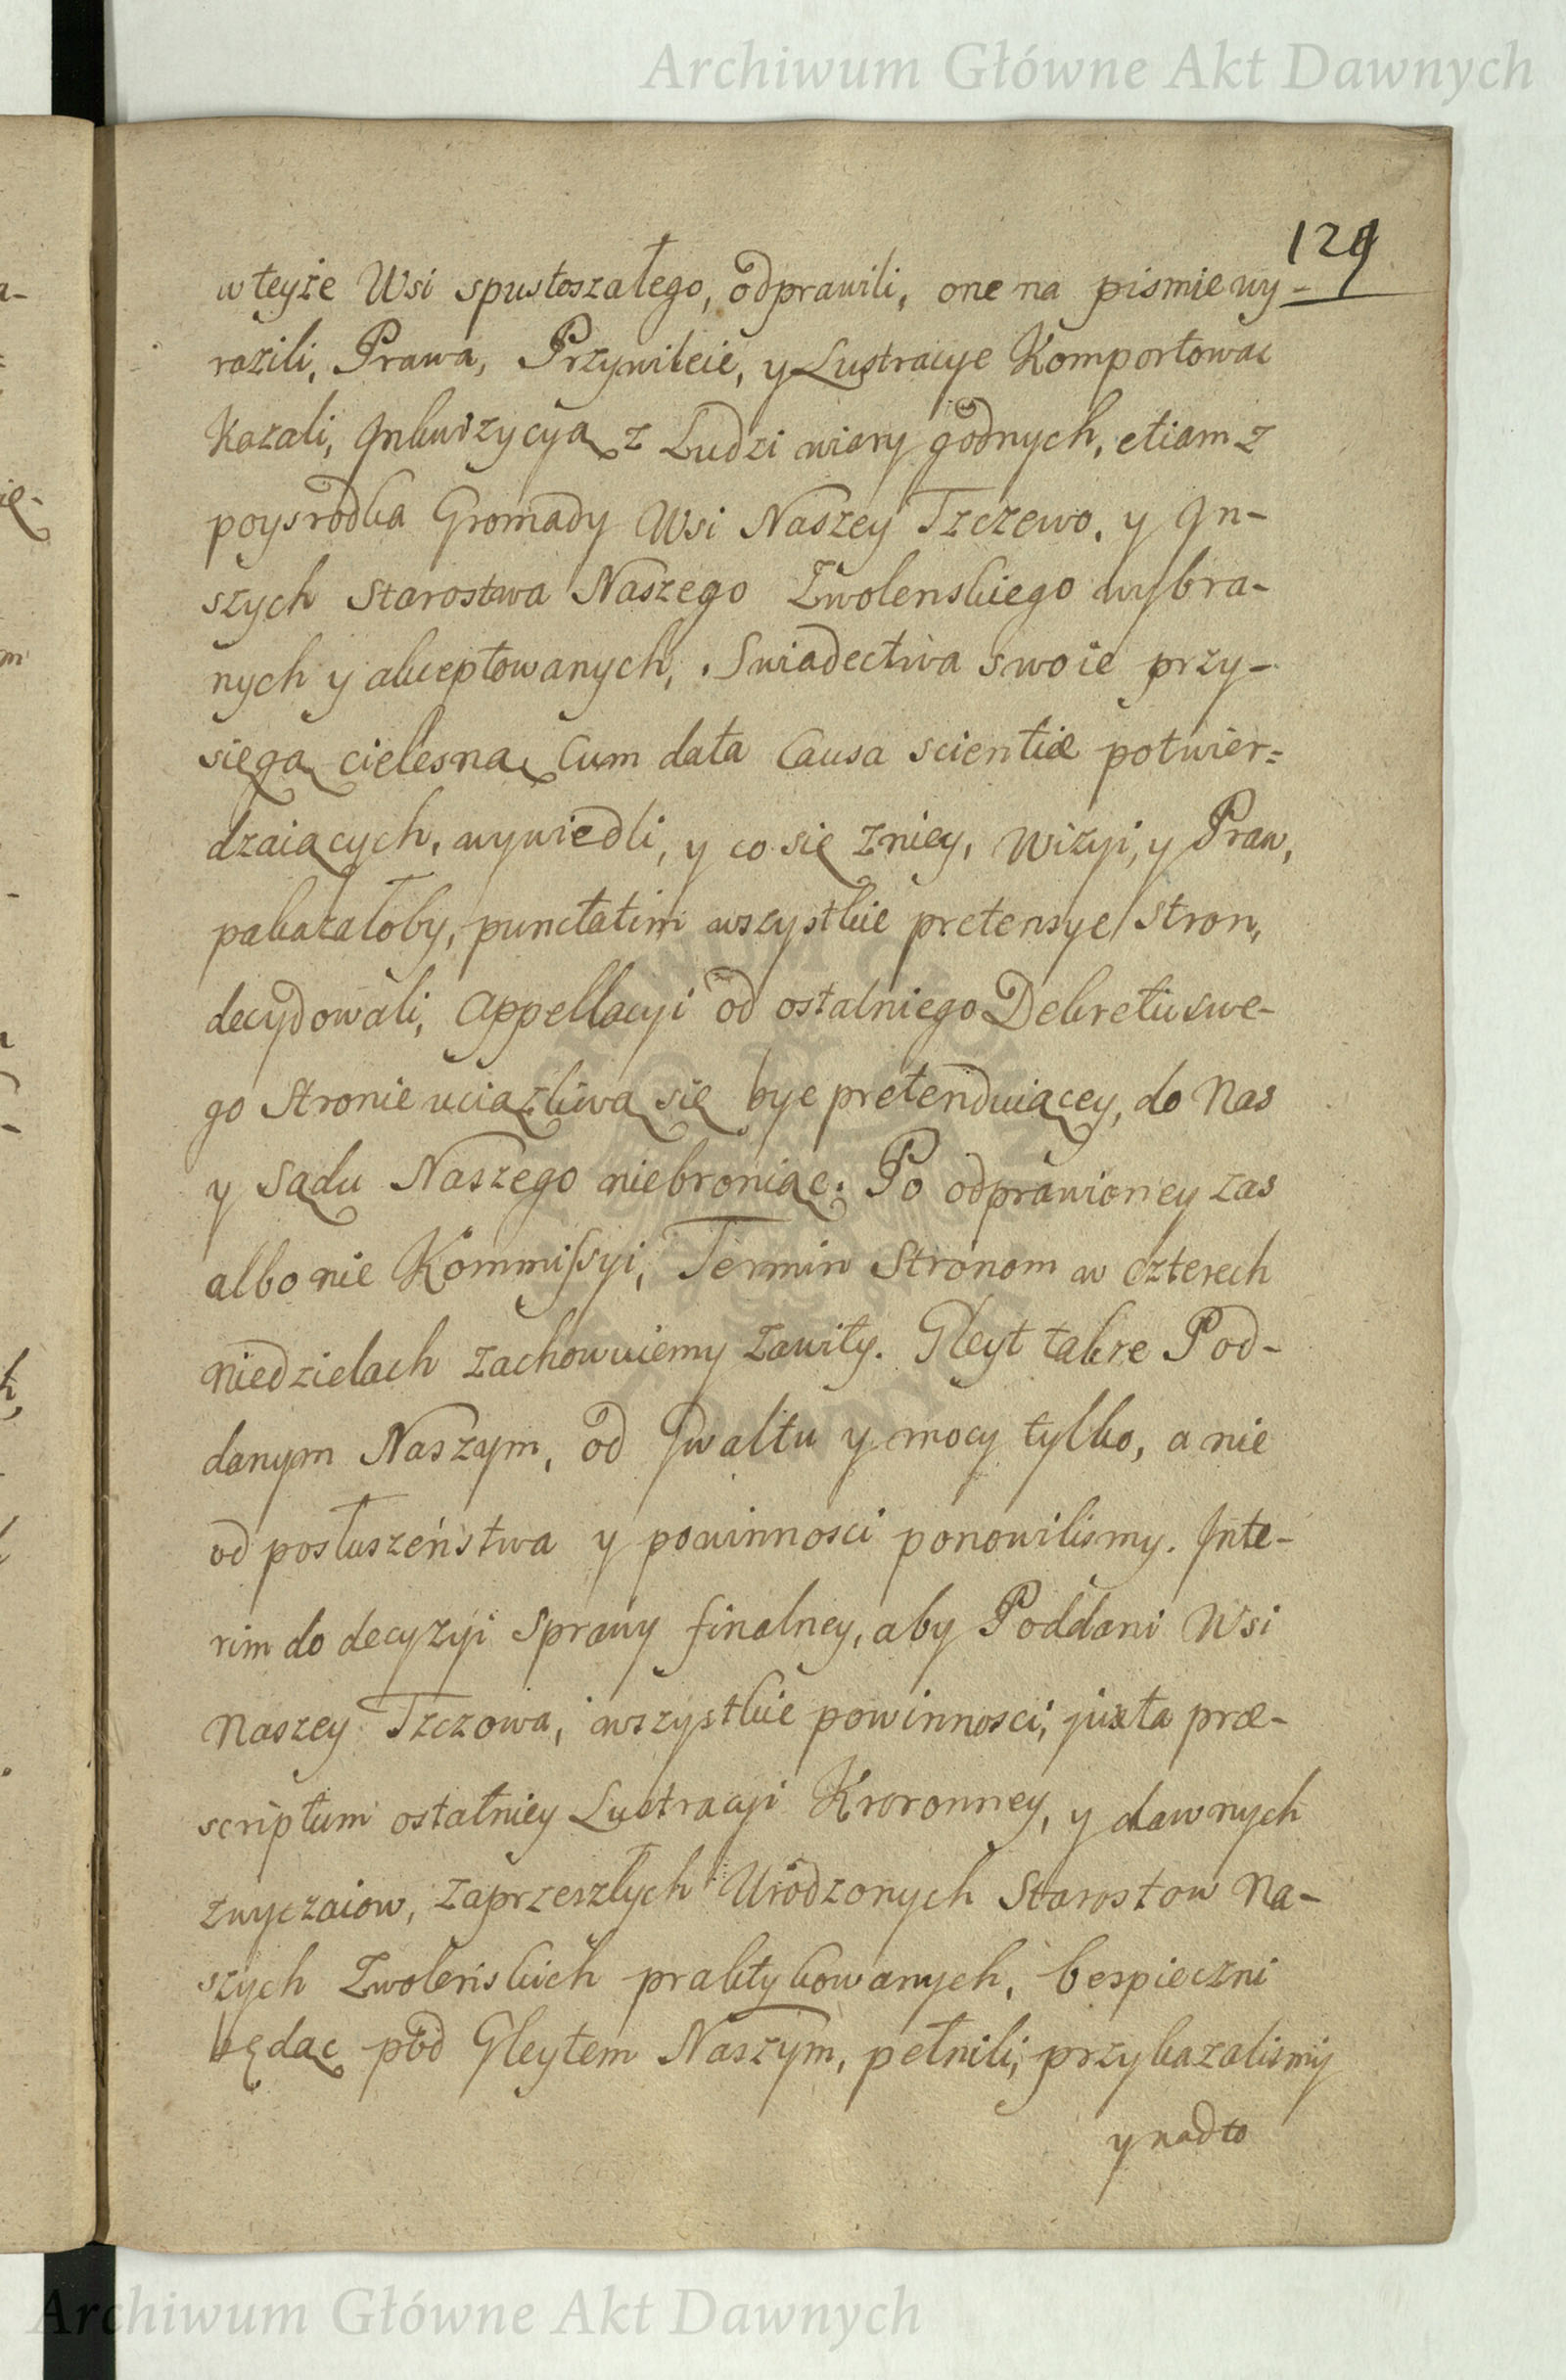 Archiwum Główne Akt Dawnych
129
w teyże Wsi spustoszałego, odprawili, one na pismie wy-
razili, Prawa, Przywileie, y Lustracye Komportowac
Kazali, Inkwizycyą z Ludzi wiary godnych, etiam z
poysrodka Gromady Wsi Naszey Tczczewo, y In-
szych Starostwa Naszego Zwolenskiego wybra-
nych y akceptowanych, Swiadectwa swoie przy-
sięgą cielesną Cum data Causa scientiæ potwier=
dzaiących, wywiedli, y co się z niey, Wizyi, y Praw,
pakazałoby, punctatim wszystkie pretensye Stron,
decydowali, Appellacyi od ostatniego Dekretu swe-
go Stronie uciążliwą się byc pretenduiącey, do Nas
y Sądu Naszego niebroniąc. Po odprawioney zas
albo nie Kommissyi, Termin Stronom w czterech
niedzielach zachowuiemy zawity. Gleyt takze Pod-
danym Naszym, od gwałtu y mocy tylko, a nie
od posłuszeństwa y powinnosci ponowilismy. Inte-
rim do decyzyi Sprawy finalney, aby Poddani Wsi
Naszey Tczczowa, wszystkie powinnosci, juxta præ-
scriptum ostatniey Lustracyi Kroronney, y dawnych
zwyczaiow, zaprzeszłych Urodzonych Starostow Na-
szych Zwoleńskich praktykowanych, bespieczni
będąc pod Gleytem Naszym, pełnili, przykazalismy
y nadto
Archiwum Główne Akt Dawnych